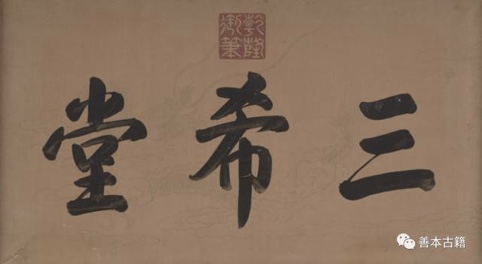 乾隆御筆
三希堂
善本古籍